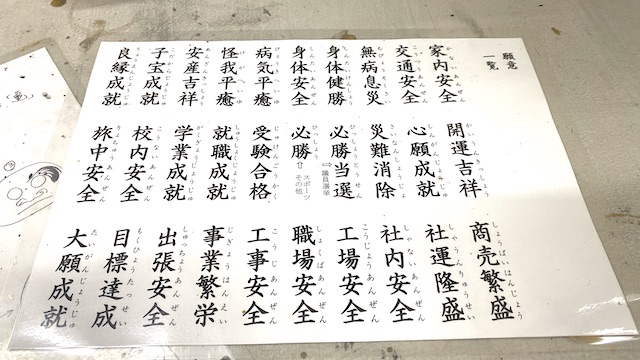 願意
一覧
家内安全
交通安全
無病息災
身体健勝
身体安全
病気平癒
怪我平癒
安産吉祥
子宝成就
良縁成就
開運吉祥
心願成就
災難消除
必勝当選
⇨議員選挙
必勝
⇨スポーツ
その他
受験合格
就職成就
学業成就
校内安全
旅中安全
商売繁盛
社運隆盛
社内安全
工場安全
職場安全
工事安全
事業繁栄
出張安全
目標達成
大願成就